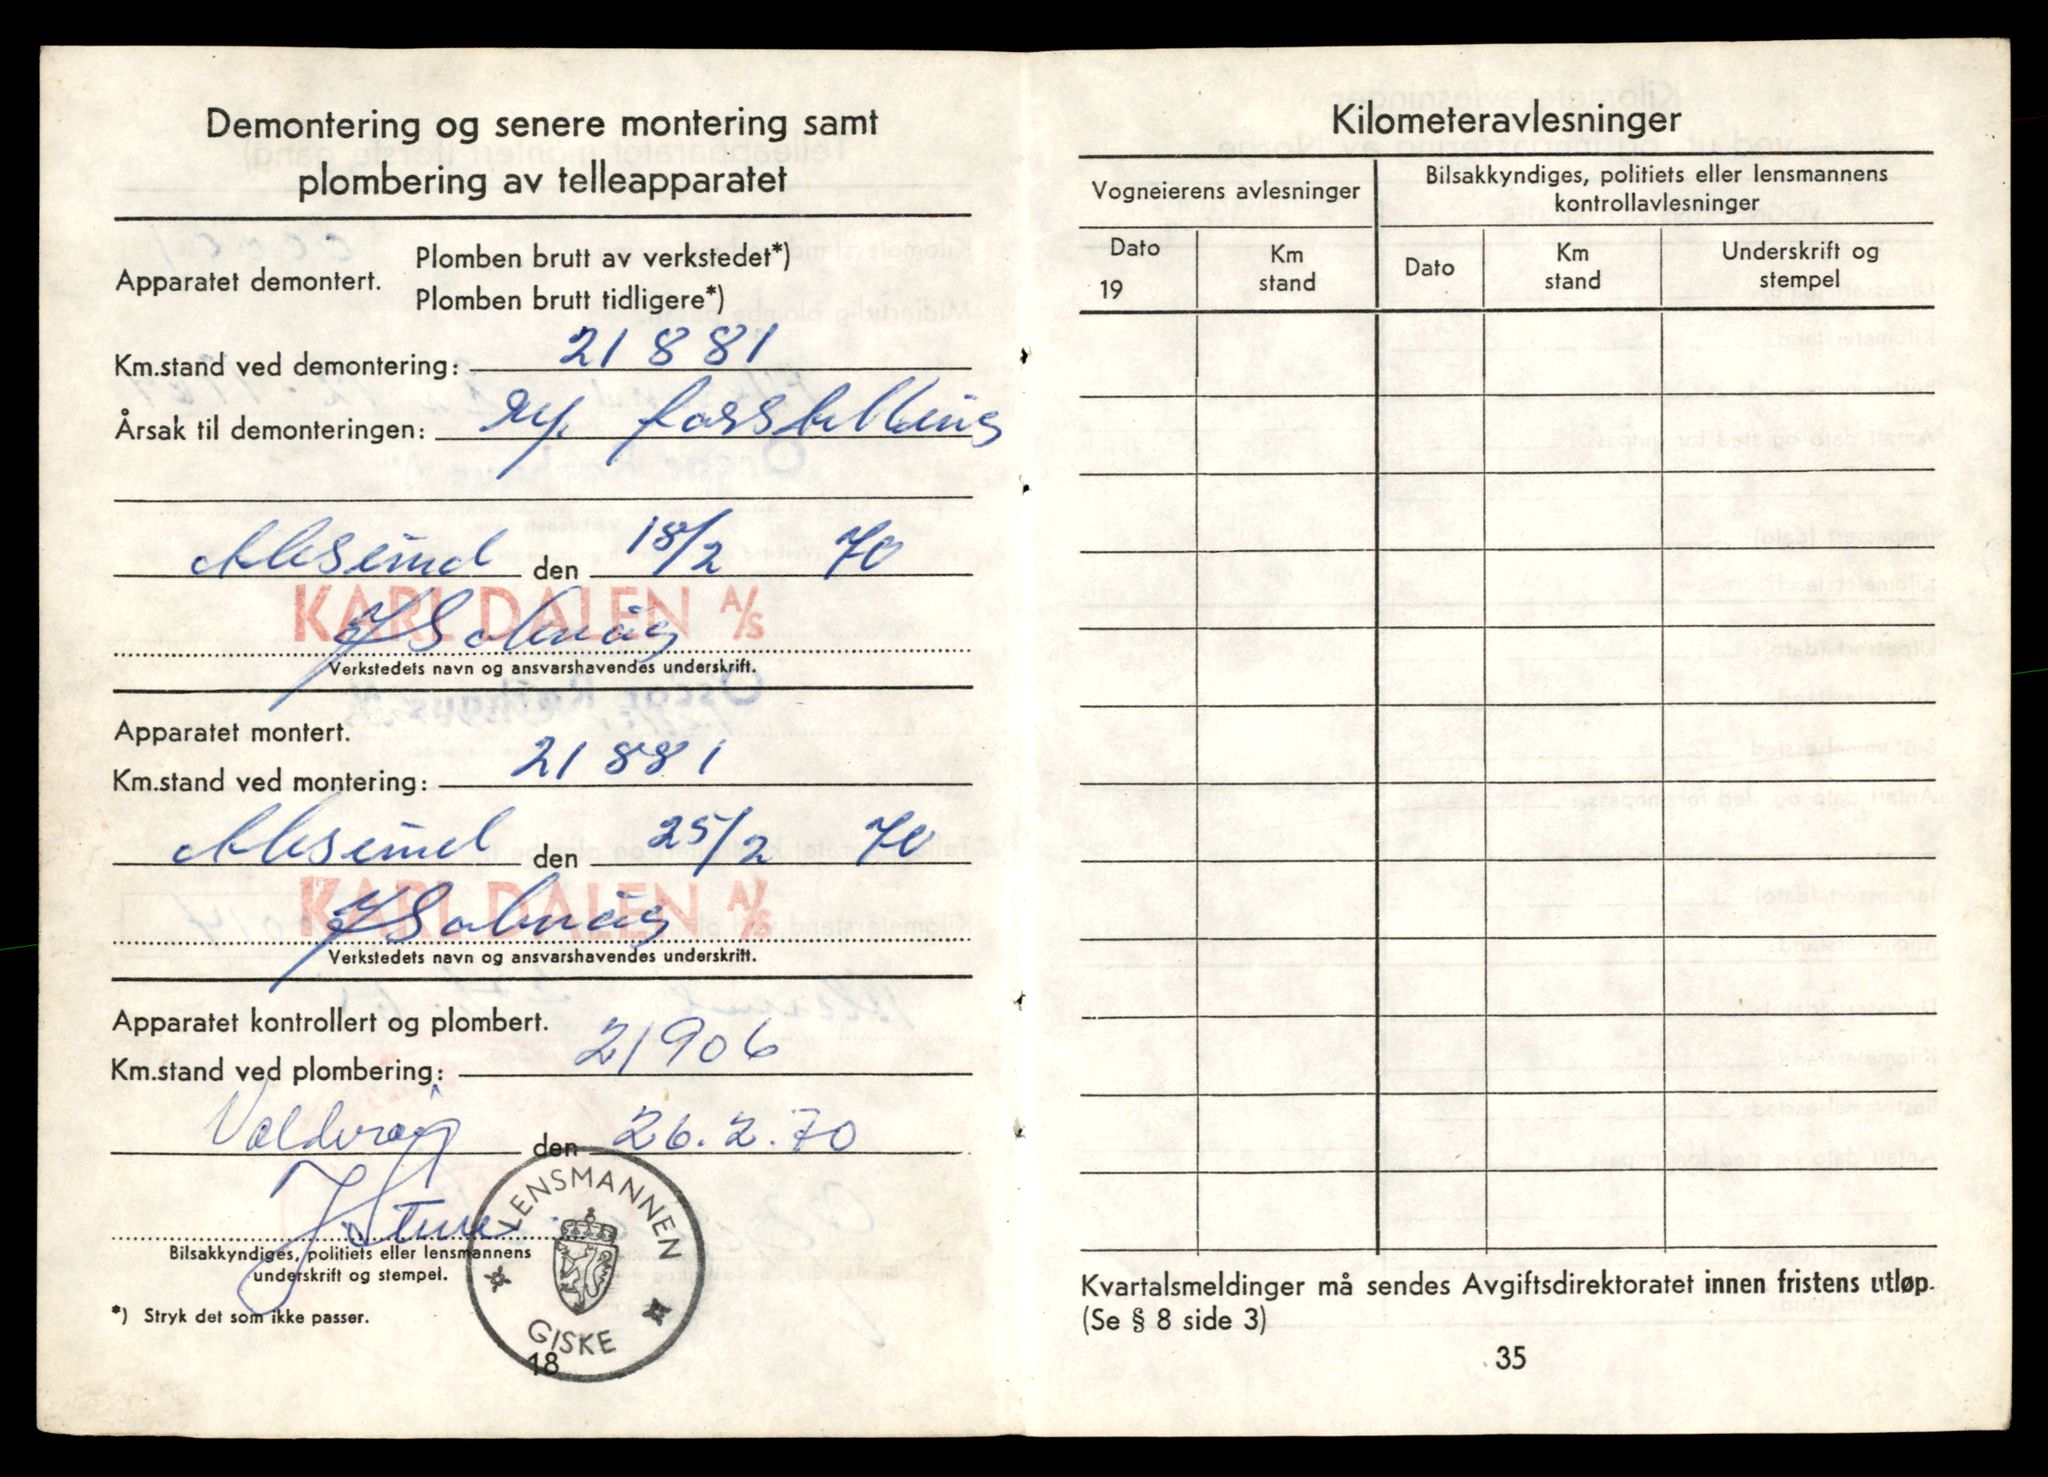 Demontering og senere montering samt
plombering av telleapparatet
Apparatet demontert.
Plomben brutt av verkstedet*)
Plomben brutt tidligere*)
Km.stand ved demontering: 21881
Årsak til demonteringen: rep. forstilling
Alesund den 18/2 70
KARL DALEN A/S
Verkstedets navn og ansvarshavendes underskrift.
Apparatet montert.
Km.stand ved montering: 21881
Alesund den 25/2 70
KARL DALEN A/S
Verkstedets navn og ansvarshavendes underskrift.
Apparatet kontrollert og plombert.
Km.stand ved plombering: 21906
Valderøy den 26.2.70
LENSMANNEN
GISKE
Bilsakkyndiges, politiets eller lensmannens
underskrift og stempel.
*) Stryk det som ikke passer.
18
Kilometeravlesninger
Vogneierens avlesninger
Bilsakkyndiges, politiets eller lensmannens
kontrollavlesninger
Dato
19
Km
stand
Dato
Km
stand
Underskrift og
stempel
Kvartalsmeldinger må sendes Avgiftsdirektoratet innen fristens utløp.
(Se § 8 side 3)
35